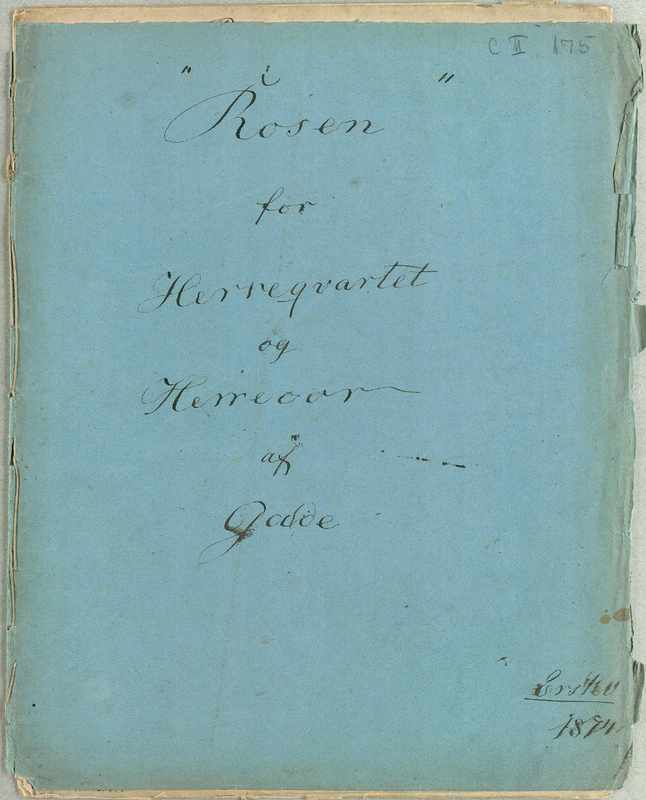 C II 175
" "
Rosen
for
Herreqvartet
og
Herrecor
af
Gade
1874